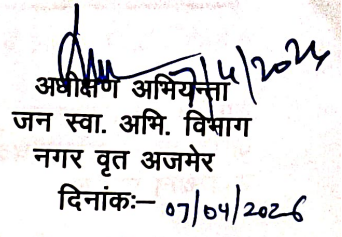 7/4/2026
अधीक्षण अभियन्ता
जन स्वा. अभि. विभाग
नगर वृत अजमेर
दिनांकः– 07/04/2026